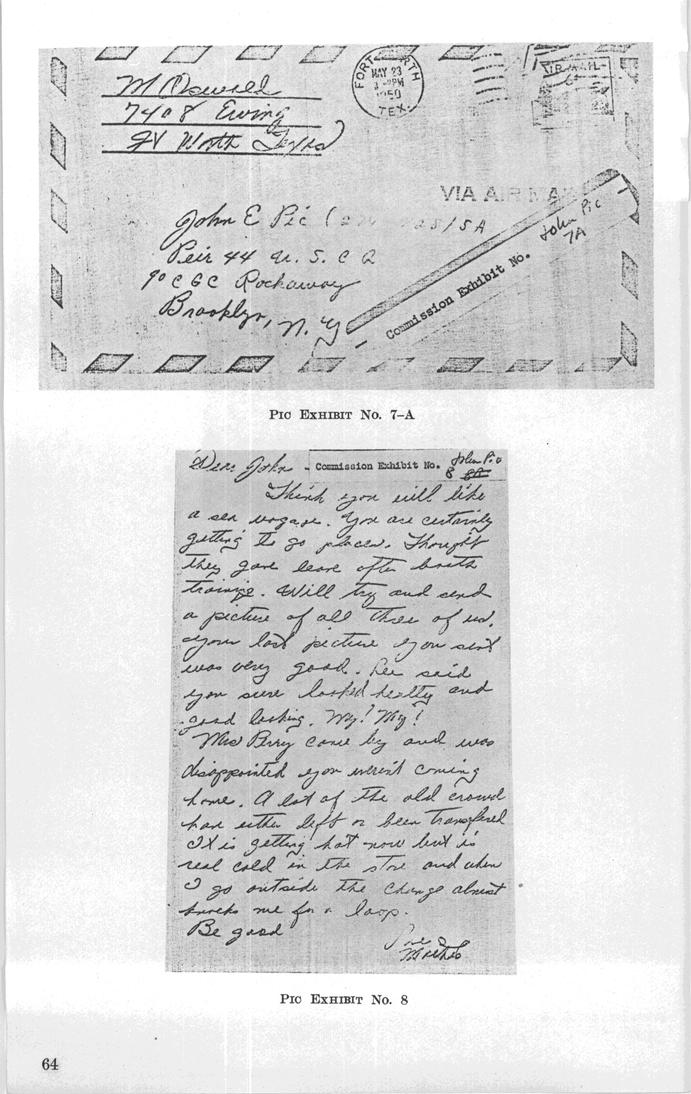 M Oswald
7408 Ewing
Ft Worth Texas
FORT WORTH
MAY 23
PM
1950
TEX.
AIR MAIL
6¢
VIA AIR MAIL
John E Pic (
Peir 44 U. S. C G
℅ CGC Rockaway
Brooklyn, N. Y
Commission Exhibit No.
John Pic
7A
PIC EXHIBIT No. 7-A
Dear John -
Commission Exhibit No.
John Pic
8
Think you will like
a sea voyage. You are certainly
getting to go places. Thought
they gave leave after booth
training. Will try and send
a picture of all three of us.
your last picture you sent
was very good. Lee said
you sure looked healty and
good looking. My! My!
Mrs Berry came by and was
disappointed you weren't coming
home. A lot of the old crowd
have either left or been transfered
It is getting hot now but is
real cold in the store and when
I go outside the change almost
knocks me for a loop.
Be good
Love
Mother
PIC EXHIBIT No. 8
64